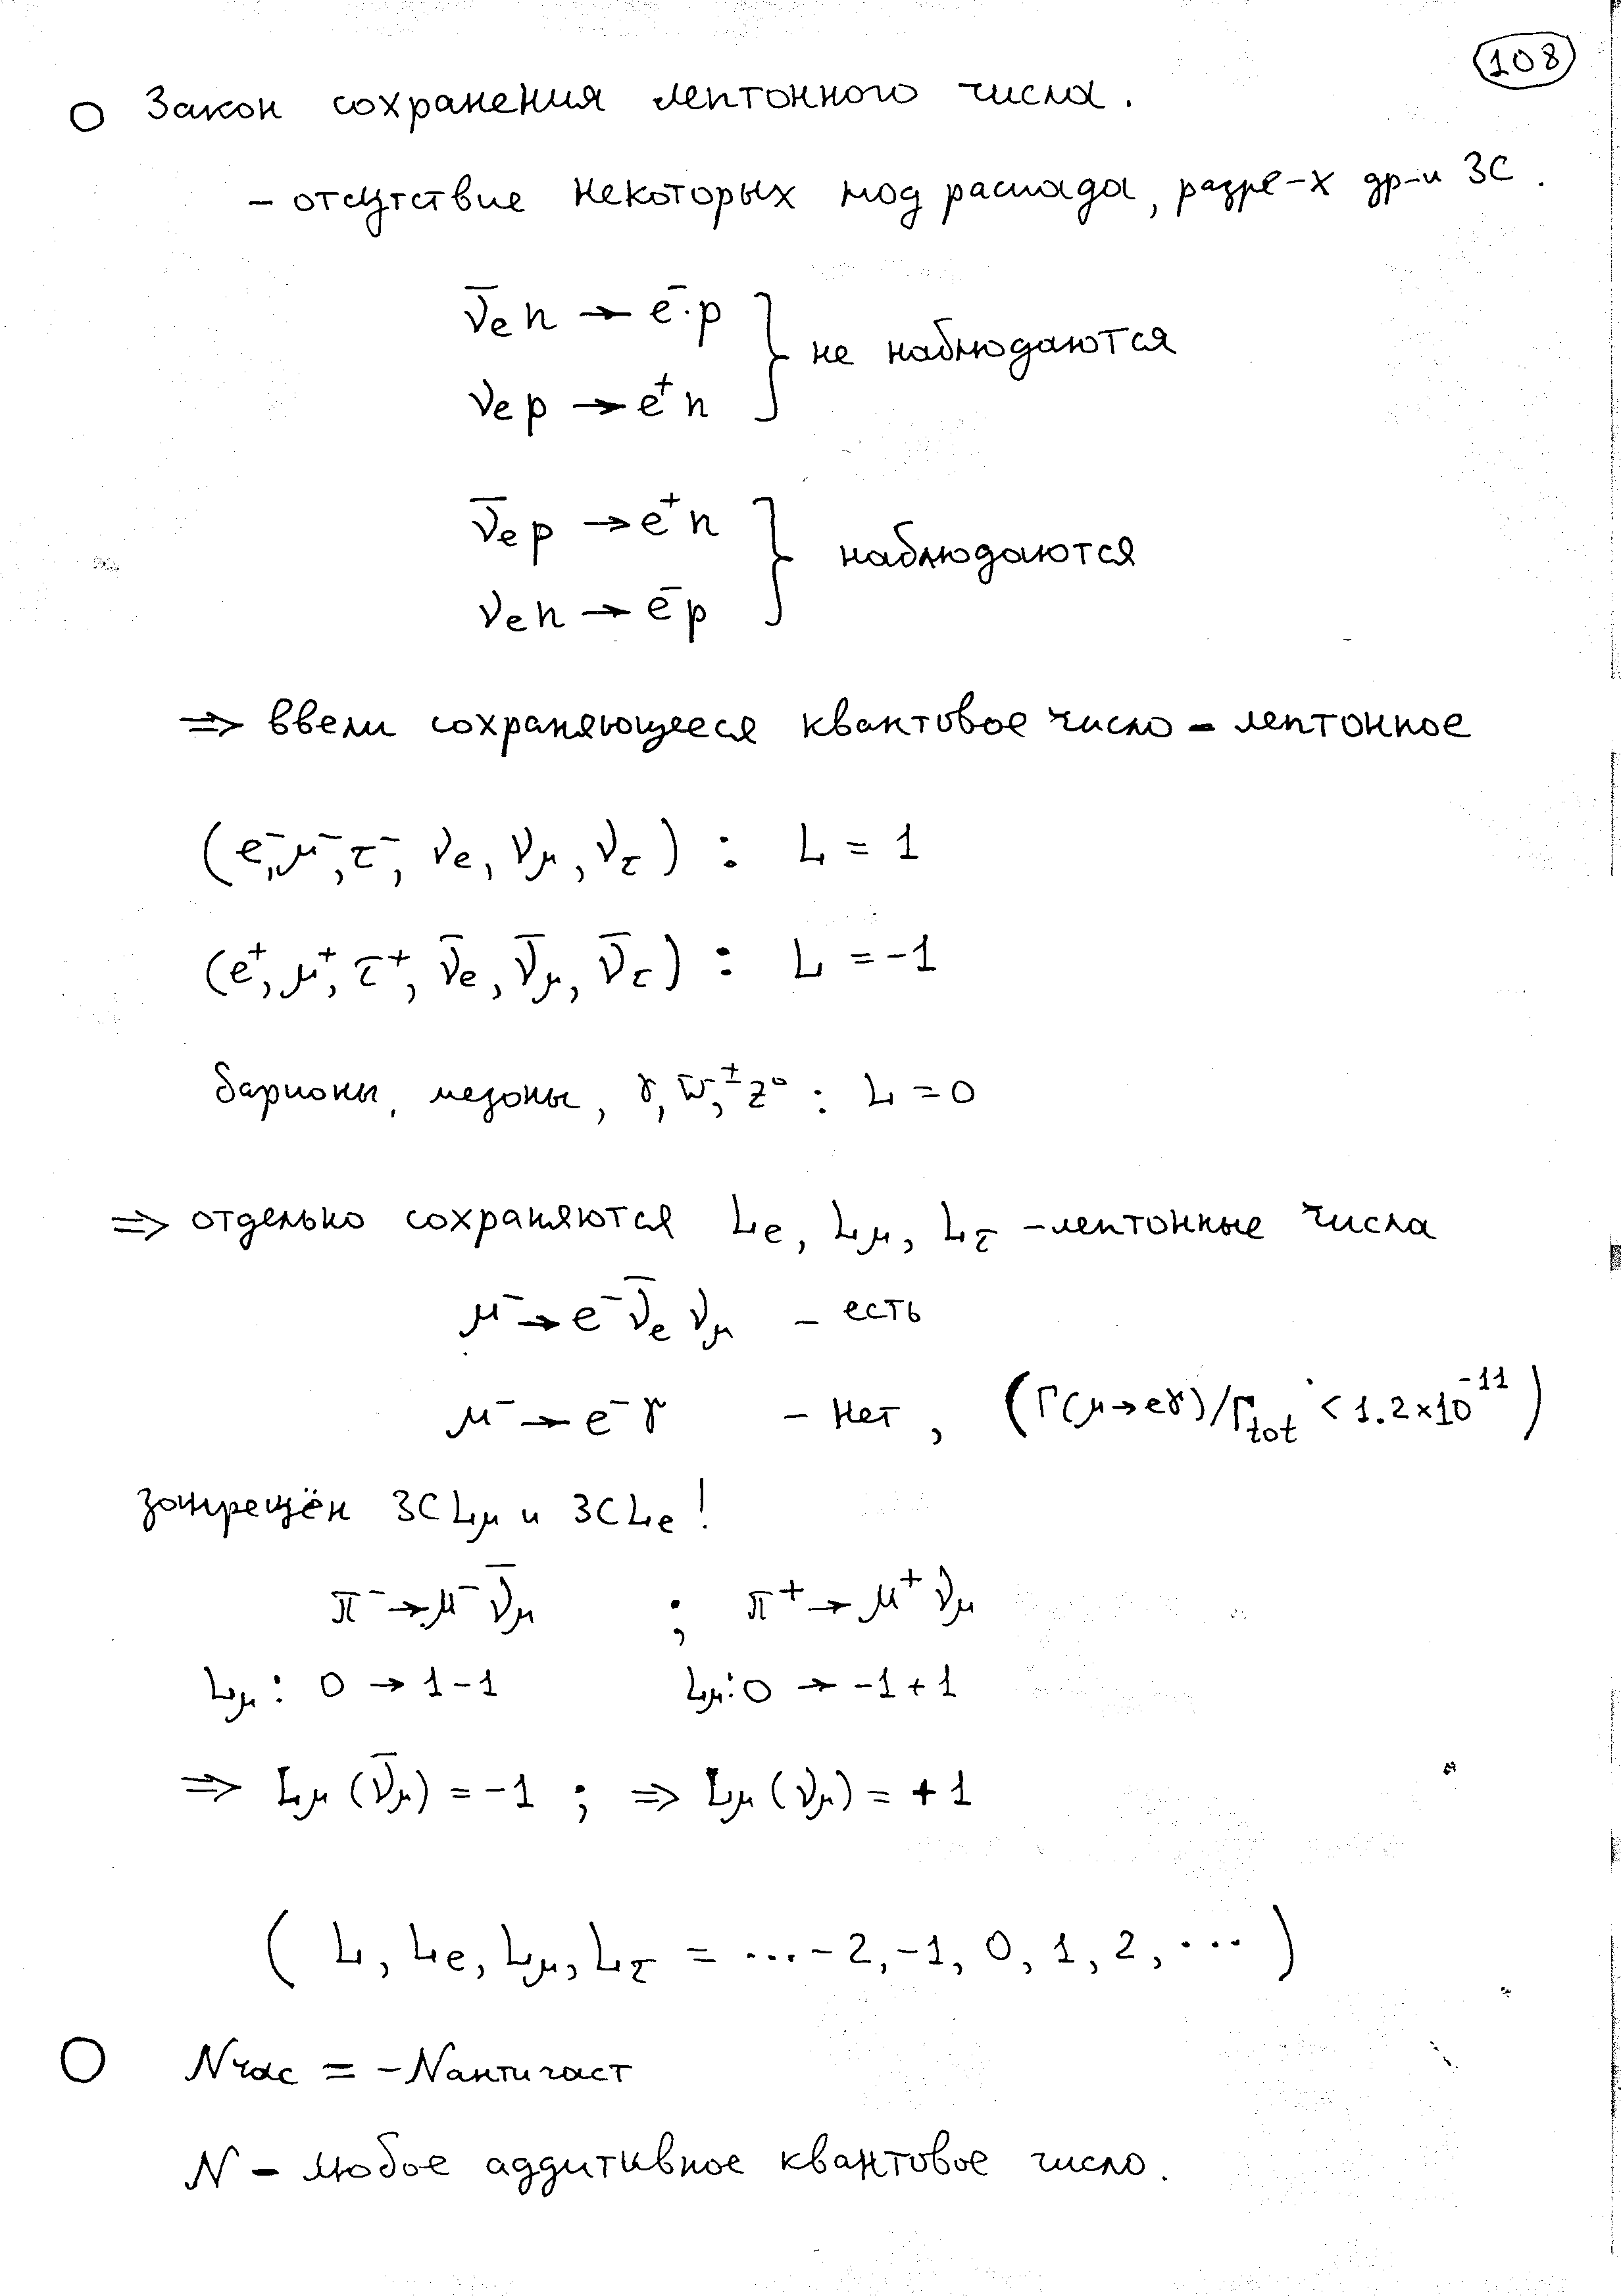 108
○ Закон сохранения лептонного числа.
– отсутствие некоторых мод распада, разре-х др-и ЗС.
ν̄ₑ n → e⁻ p
} не наблюдаются
νₑ p → e⁺ n
ν̄ₑ p → e⁺ n
} наблюдаются
νₑ n → e⁻ p
⇒ ввели сохраняющееся квантовое число – лептонное
(e⁻, μ⁻, τ⁻, νₑ, ν_μ, ν_τ) : L = 1
(e⁺, μ⁺, τ⁺, ν̄ₑ, ν̄_μ, ν̄_τ) : L = -1
барионы, мезоны, γ, W,± Z⁰ : L = 0
⇒ отдельно сохраняются Lₑ, L_μ, L_τ – лептонные числа
μ⁻ → e⁻ ν̄ₑ ν_μ – есть
μ⁻ → e⁻ γ – нет, (Γ(μ→eγ)/Γ_tot < 1.2×10⁻¹¹)
запрещён ЗС L_μ и ЗС Lₑ!
π⁻ → μ⁻ ν̄_μ ; π⁺ → μ⁺ ν_μ
L_μ : 0 → 1 - 1 L_μ : 0 → -1 + 1
⇒ L_μ (ν̄_μ) = -1 ; ⇒ L_μ (ν_μ) = +1
( L, Lₑ, L_μ, L_τ = ... -2, -1, 0, 1, 2, ... )
○ Nчас = -Nантичаст
N – любое аддитивное квантовое число.